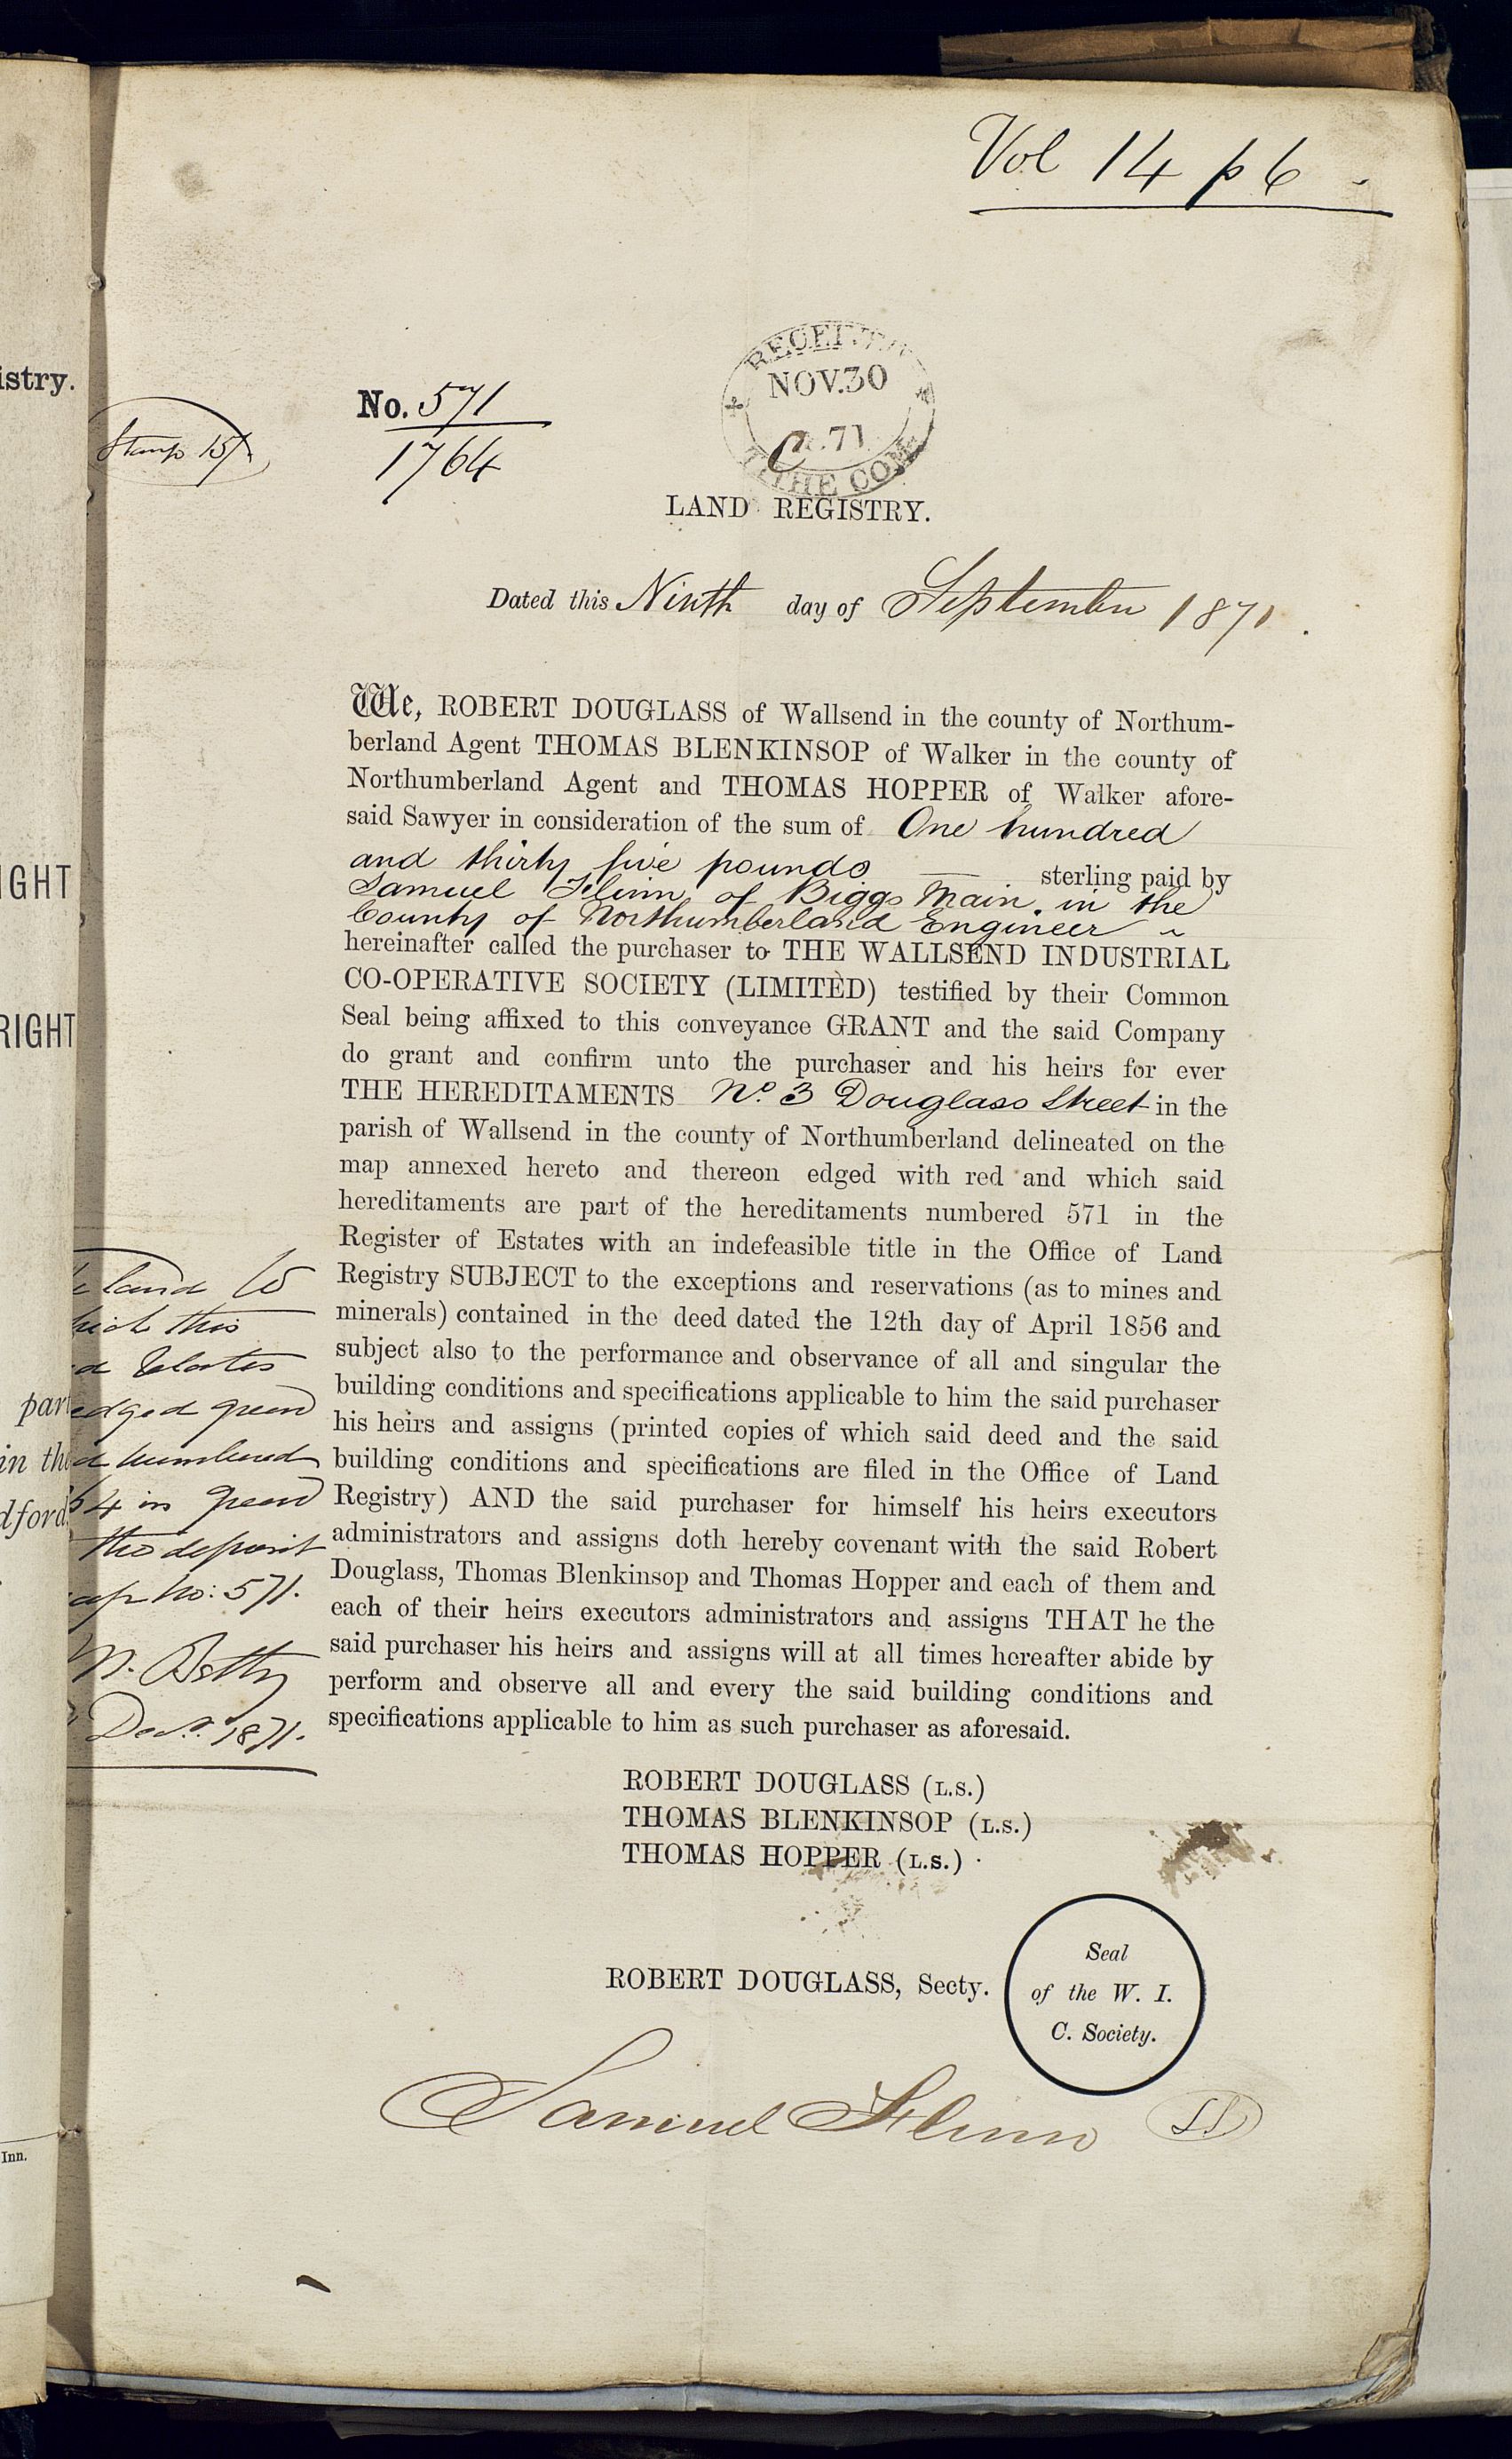 Vol 14 p 6
istry.
Stamp 15/
No. 571
1764
RECEIVED
NOV.30
C 71
TITHE COM
LAND REGISTRY.
Dated this Ninth day of September 1871.
We, ROBERT DOUGLASS of Wallsend in the county of Northum-
berland Agent THOMAS BLENKINSOP of Walker in the county of
Northumberland Agent and THOMAS HOPPER of Walker afore-
said Sawyer in consideration of the sum of One hundred
and thirty five pounds — sterling paid by
Samuel Flinn of Biggs Main in the
County of Northumberland Engineer ~
hereinafter called the purchaser to THE WALLSEND INDUSTRIAL
CO-OPERATIVE SOCIETY (LIMITED) testified by their Common
Seal being affixed to this conveyance GRANT and the said Company
do grant and confirm unto the purchaser and his heirs for ever
THE HEREDITAMENTS No. 3 Douglass Street in the
parish of Wallsend in the county of Northumberland delineated on the
map annexed hereto and thereon edged with red and which said
hereditaments are part of the hereditaments numbered 571 in the
Register of Estates with an indefeasible title in the Office of Land
Registry SUBJECT to the exceptions and reservations (as to mines and
minerals) contained in the deed dated the 12th day of April 1856 and
subject also to the performance and observance of all and singular the
building conditions and specifications applicable to him the said purchaser
his heirs and assigns (printed copies of which said deed and the said
building conditions and specifications are filed in the Office of Land
Registry) AND the said purchaser for himself his heirs executors
administrators and assigns doth hereby covenant with the said Robert
Douglass, Thomas Blenkinsop and Thomas Hopper and each of them and
each of their heirs executors administrators and assigns THAT he the
said purchaser his heirs and assigns will at all times hereafter abide by
perform and observe all and every the said building conditions and
specifications applicable to him as such purchaser as aforesaid.
IGHT
RIGHT
land to
hich this
d relates
edged green
numbered
4 in green
the deposit
ap No: 571.
Decr. 1871.
par
in the
dford
Inn.
ROBERT DOUGLASS (L.S.)
THOMAS BLENKINSOP (L.S.)
THOMAS HOPPER (L.S.)
ROBERT DOUGLASS, Secty.
Seal
of the W. I.
C. Society.
Samuel Flinn LS